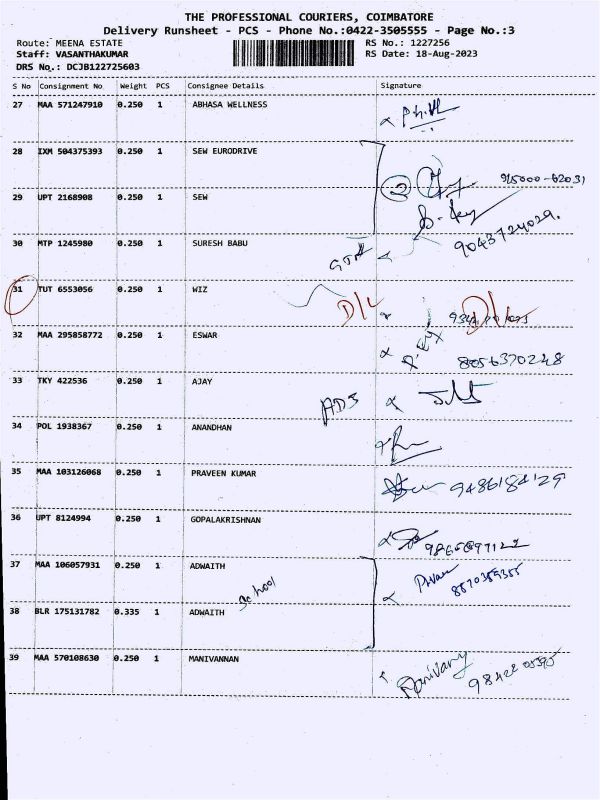 THE PROFESSIONAL COURIERS, COIMBATORE
Delivery Runsheet - PCS - Phone No.:0422-3505555 - Page No.:3
Route: MEENA ESTATE RS No.: 1227256
Staff: VASANTHAKUMAR RS Date: 18-Aug-2023
DRS No.: DCJB122725603
S No Consignment No Weight PCS Consignee Details Signature
27 MAA 571247910 0.250 1 ABHASA WELLNESS
28 IXM 504375393 0.250 1 SEW EURODRIVE
29 UPT 2168908 0.250 1 SEW
30 MTP 1245980 0.250 1 SURESH BABU 9043724029.
31 TUT 6553056 0.250 1 WIZ D/L D/L
32 MAA 295858772 0.250 1 ESWAR 8056370248
33 TKY 422536 0.250 1 AJAY ADS
34 POL 1938367 0.250 1 ANANDHAN
35 MAA 103126068 0.250 1 PRAVEEN KUMAR 9486184129
36 UPT 8124994 0.250 1 GOPALAKRISHNAN
37 MAA 106057931 0.250 1 ADWAITH
school
38 BLR 175131782 0.335 1 ADWAITH
39 MAA 570108630 0.250 1 MANIVANNAN